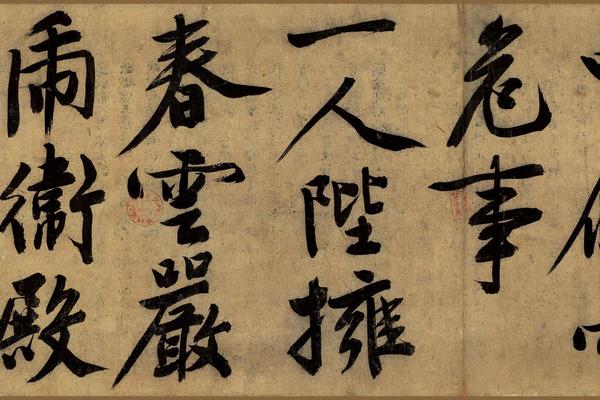 危事
一人陛擁
春雲嚴
衛殿